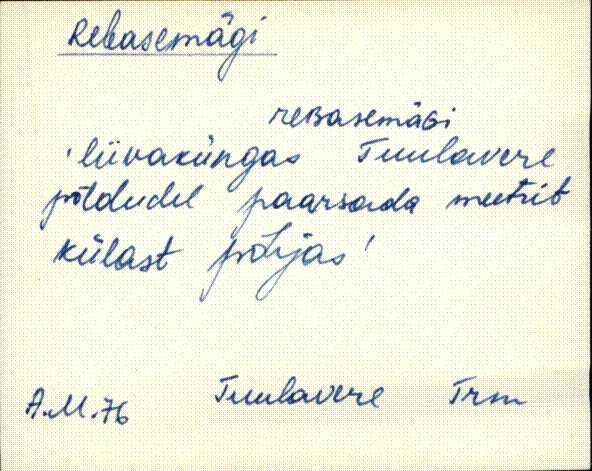 Rebasemägi
reBasemäGi
'liivaküngas Tuulavere
põldudel paarsada meetrit
külast põhjas'
A.M.76 Tuulavere Trm